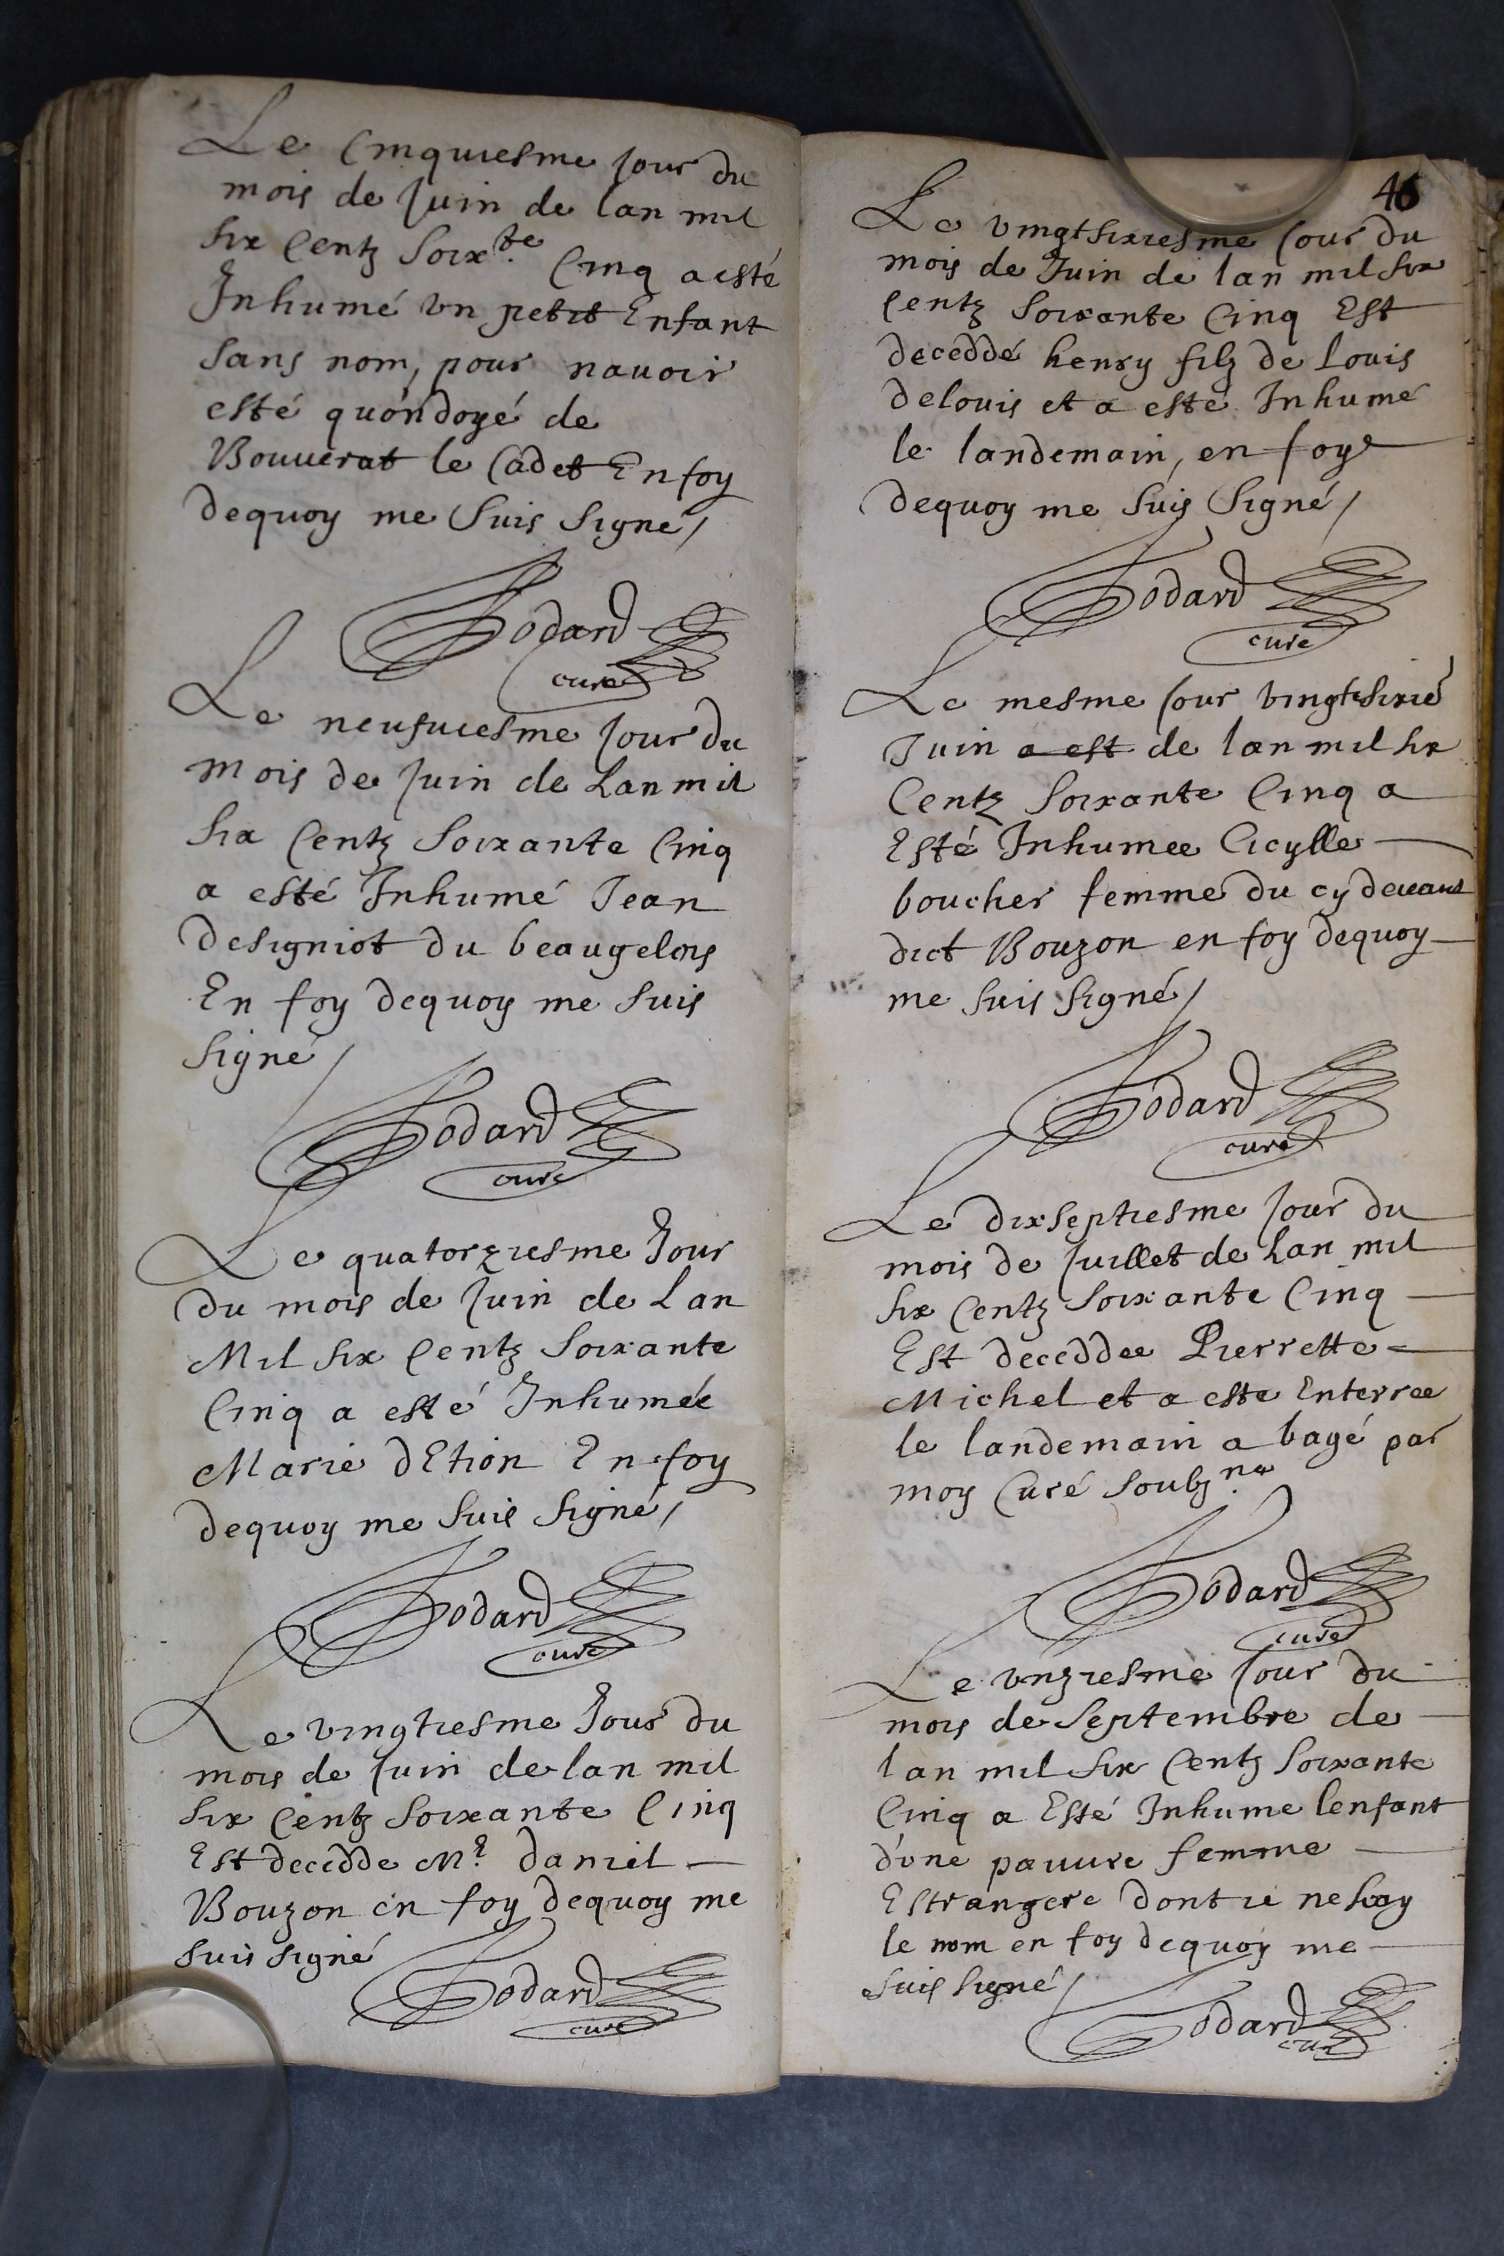 Le Cinquiesme Jour du
mois de Juin de lan mil
six Centz Soix.te Cinq a esté
Inhumé vn petit Enfant
sans nom, pour nauoir
esté quondoyé de
Bouuerat le Cadet En foy
dequoy me Suis Signé /
Godard
curé
Le neufuiesme Jour du
mois de Juin de Lan mil
six Centz Soixante Cinq
a esté Inhumé Jean
designiot du beaugelois
En foy dequoy me suis
signé /
Godard
curé
Le quatorziesme Jour
du mois de Juin de Lan
Mil six Centz Soixante
Cinq a esté Inhumée
Marie dEtion En foy
dequoy me Suis Signé /
Godard
curé
Le vingtiesme Jour du
mois de Juin de lan mil
six Centz Soixante Cinq
Est decedde Mr. daniel
Bouzon en foy dequoy me
suis signé
Godard
curé
46
Le vingtsixiesme Jour du
mois de Juin de lan mil six
Centz Soixante Cinq Est
deceddé henry filz de Louis
delouis et a esté Inhumé
le landemain, en foy
dequoy me Suis Signé /
Godard
curé
Le mesme Jour vingtsixie
Juin a est de lan mil six
Centz Soixante Cinq a
Esté Inhumee Cicylle
boucher femme du cy deuant
dict Bouzon en foy dequoy
me suis signé /
Godard
curé
Le dixseptiesme Jour du
mois de Juillet de Lan mil
six Centz Soixante Cinq
Est deceddee Pierrette
Michel et a este Enterree
le landemain a bagé par
moy Curé Soubz.ne
Godard
curé
Le vnziesme Jour du
mois de Septembre de
lan mil six Centz Soixante
Cinq a Esté Inhume lenfant
d'vne pauure femme
Estrangere dont ie ne scay
le nom en foy dequoy me
suis signé /
Godard
curé